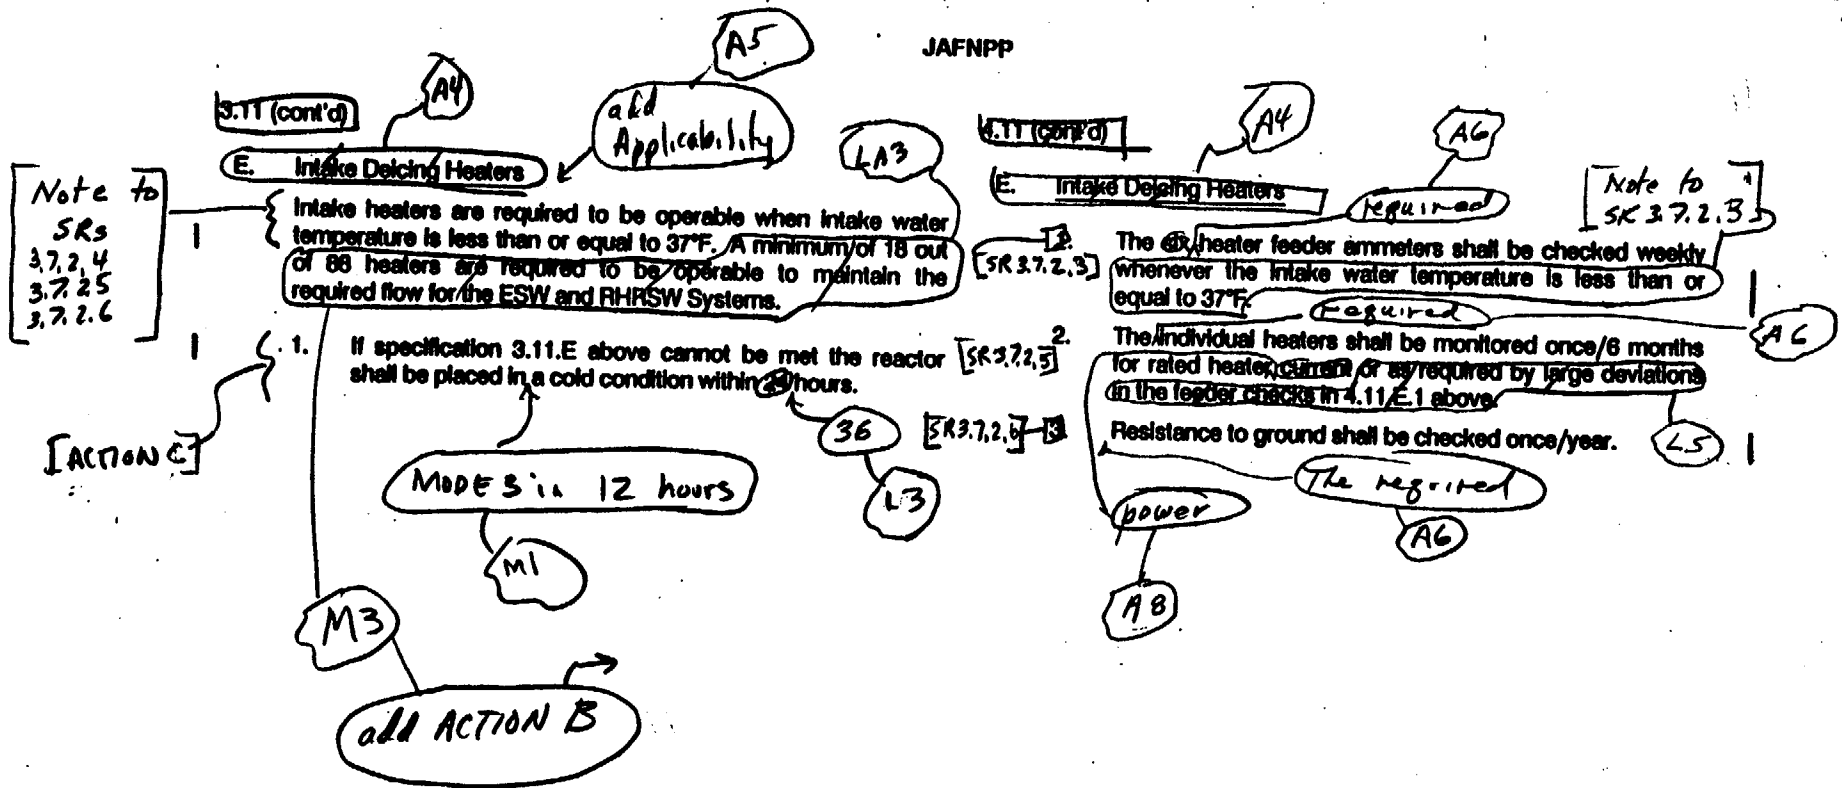 JAFNPP
A5
A4
3.11 (cont'd)
add
Applicability
LA3
E. Intake Deicing Heaters
Note to
SRs
3.7.2.4
3.7.2.5
3.7.2.6
Intake heaters are required to be operable when intake water
temperature is less than or equal to 37°F. A minimum of 18 out
of 88 heaters are required to be operable to maintain the
required flow for the ESW and RHRSW Systems.
1. If specification 3.11.E above cannot be met the reactor
shall be placed in a cold condition within 24 hours.
[ACTION C]
36
L3
MODE 3 in 12 hours
M1
M3
add ACTION B
4.11 (cont'd)
A4
A6
E. Intake Deicing Heaters
required
[Note to
SR 3.7.2.3]
[SR 3.7.2.3]
1. The six heater feeder ammeters shall be checked weekly
whenever the intake water temperature is less than or
equal to 37°F.
required
A6
[SR 3.7.2.5]
2. The individual heaters shall be monitored once/6 months
for rated heater current or as required by large deviations
in the feeder checks in 4.11.E.1 above.
L5
[SR 3.7.2.6]
3. Resistance to ground shall be checked once/year.
The required
A6
power
A8